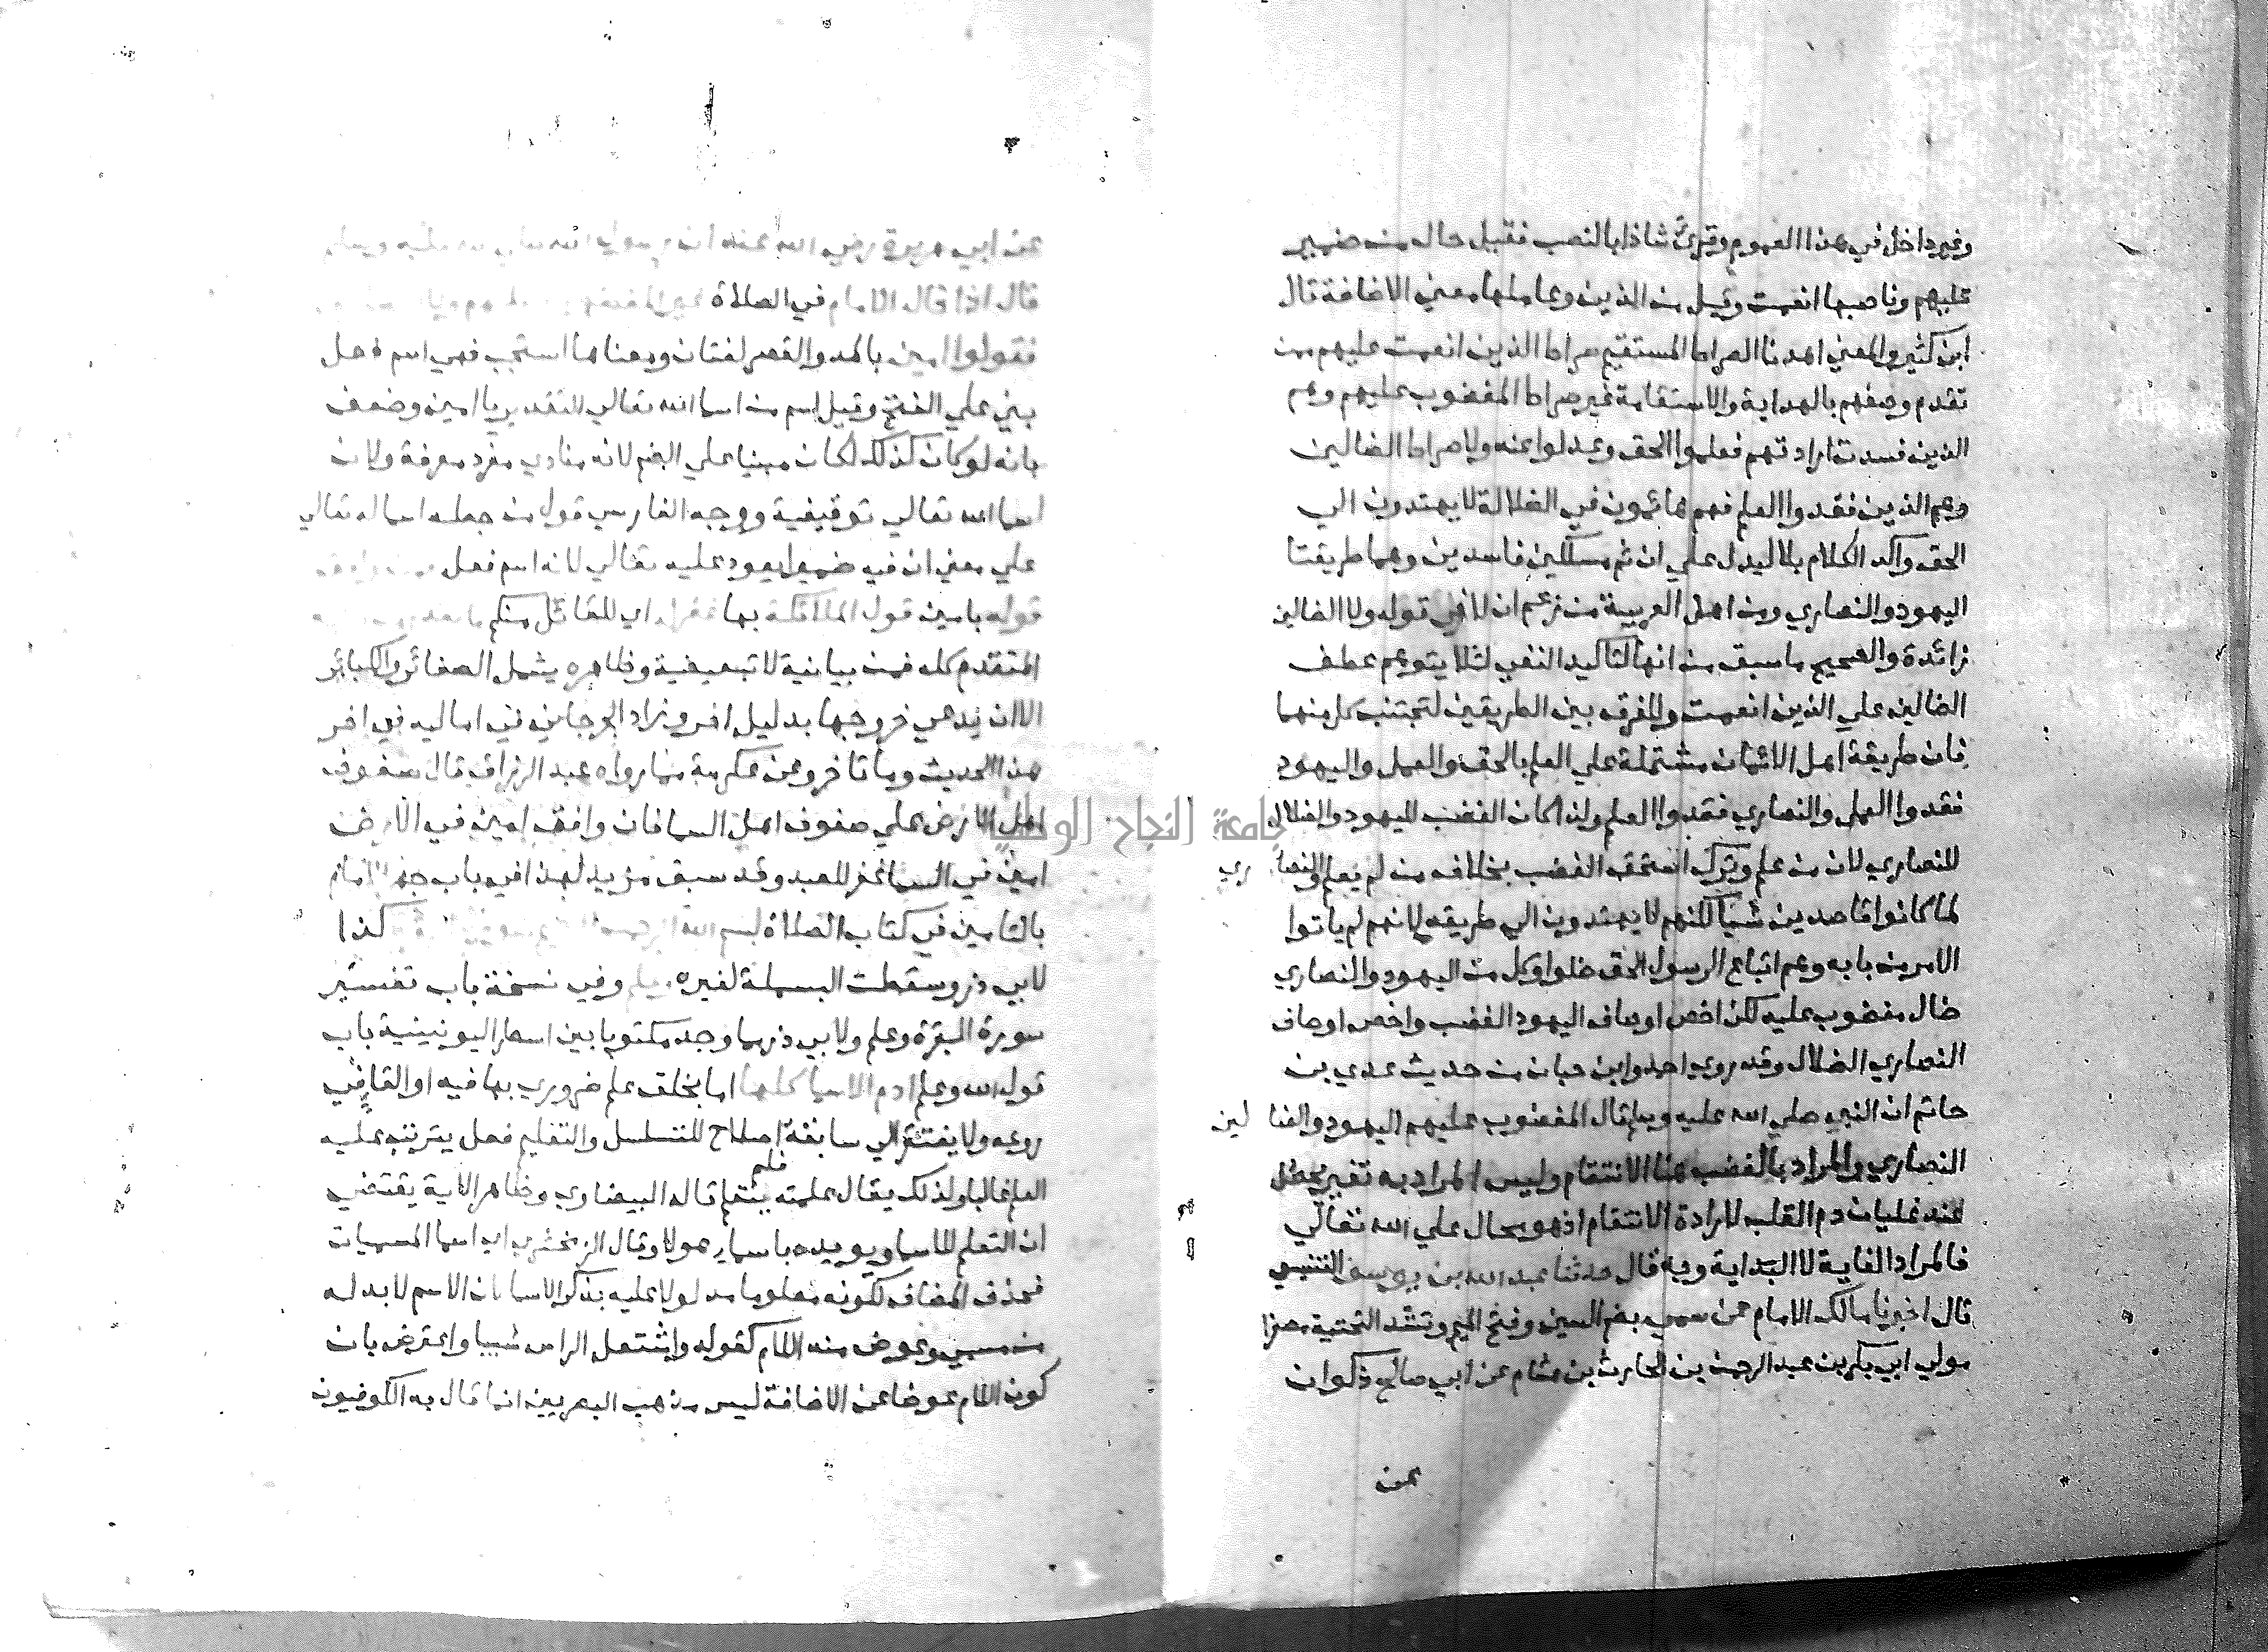 وغير داخل في هذا العموم وقرئ شاذا بالنصب فقيل حال من ضمير
عليهم وناصبها انعمت وقيل من الذين وعاملها معني الاضافة قال
ابن كثير والمعني اهدنا الصراط المستقيم صراط الذين انعمت عليهم ممن
تقدم وصفهم بالهداية والاستقامة غير صراط المغضوب عليهم وهم
الذين فسدت ارادتهم فعلموا الحق وعدلوا عنه ولا صراط الضالين
وهم الذين فقدوا العلم فهم هائمون في الضلالة لا يهتدون الي
الحق واكد الكلام بلا ليدل علي ان ثم مسلكين فاسدين وهما طريقتا
اليهود والنصاري ومن اهل العربية من زعم ان لا في قوله ولا الضالين
زائدة والصحيح ما سبق من انها لتاكيد النفي لئلا يتوهم عطف
الضالين علي الذين انعمت وللفرق بين الطريقين لتجتنب كل منهما
فان طريقة اهل الائمان مشتملة علي العلم بالحق والعمل واليهود
فقدوا العمل والنصاري فقدوا العلم ولذا كان الغضب لليهود والضلال
للنصاري لان من علم وترك استحق الغضب بخلاف من لم يعلم والنصاري
لما كانوا قاصدين شيا لكنهم لا يهتدون الي طريقه لانهم لم ياتوا
الامر من بابه وهم اتباع الرسول الحق ضلوا وكل من اليهود والنصاري
ضال مغضوب عليه لكن اخص اوصاف اليهود الغضب واخص اوصاف
النصاري الضلال وقد روي احمد وابن حبان من حديث عدي بن
حاتم ان النبي صلي الله عليه وسلم قال المغضوب عليهم اليهود والضالين
النصاري والمراد بالغضب هنا الانتقام وليس المراد به تغير يحصل
عند غليان دم القلب لارادة الانتقام اذ هو محال علي الله تعالي
فالمراد الغاية لا البداية وبه قال حدثنا عبد الله بن يوسف التنيسي
قال اخبرنا مالك الامام عن سمي بضم السين وفتح الميم وتشد التحتية مصغرا
مولي ابي بكر بن عبد الرحمن بن الحارث بن هشام عن ابي صالح ذكوان
عن
عن ابي هريرة رضي الله عنه ان رسول الله صلي الله عليه وسلم
قال اذا قال الامام في الصلاة غير المغضوب عليهم ولا
فقولوا امين بالمد والقصر لغتان ومعناها استجب فهي اسم فعل
بني علي الفتح وقيل اسم من اسما الله تعالي التقدير يا امين وضعف
بانه لو كان كذلك لكان مبنيا علي الضم لانه منادي مفرد معرفة ولان
اسما الله تعالي توقيفية ووجه الفارسي قول من جعله اسما له تعالي
علي معني ان فيه ضميرا يعود عليه تعالي لانه اسم فعل
قوله بامين قول الملائكة بها غفر له اي للقائل منكم ما
المتقدم كله فمن بيانية لا تبعيضية وظاهره يشمل الصغائر والكبائر
الا ان يدعي خروجها بدليل اخر وزاد الجرجاني في اماليه في اخر
هذا الحديث وما تاخر وعن عكرمة مما رواه عبد الرزاق قال صفوف
اهل الارض علي صفوف اهل السما فان وافق امين في الارض
امين في السما غفر للعبد وقد سبق مزيد لهذا في باب جهر الامام
بالتامين في كتاب الصلاة بسم الله الرحمن الرحيم كذا
لابي ذر وسقطت البسملة لغيره وفي نسخة باب تفسير
سورة البقرة وعلم ولابي ذر مما وجد مكتوبا بين اسطر اليونينية باب
قول الله وعلم ادم الاسما كلها اما بخلق علم ضروري بها فيه او القا في
روعه ولا يفتقر الي سابقة اصطلاح للتسلسل والتعليم فعل يترتب عليه
العلم غالبا ولذلك يقال علمته فلم يتعلم قاله البيضاوي وظاهر الاية يقتضي
ان التعليم للاسما ويويده باسما هولا وقال الزمخشري اي اسما المسميات
فحذف المضاف لكونه معلوما مدلولا عليه بذكر الاسما لان الاسم لا بد له
من مسمي وعوض منه اللام كقوله واشتعل الراس شيبا واعترض بان
كون اللام عوضا عن الاضافة ليس مذهب البصريين انما قال به الكوفيون
جامعة النجاح الوطنية